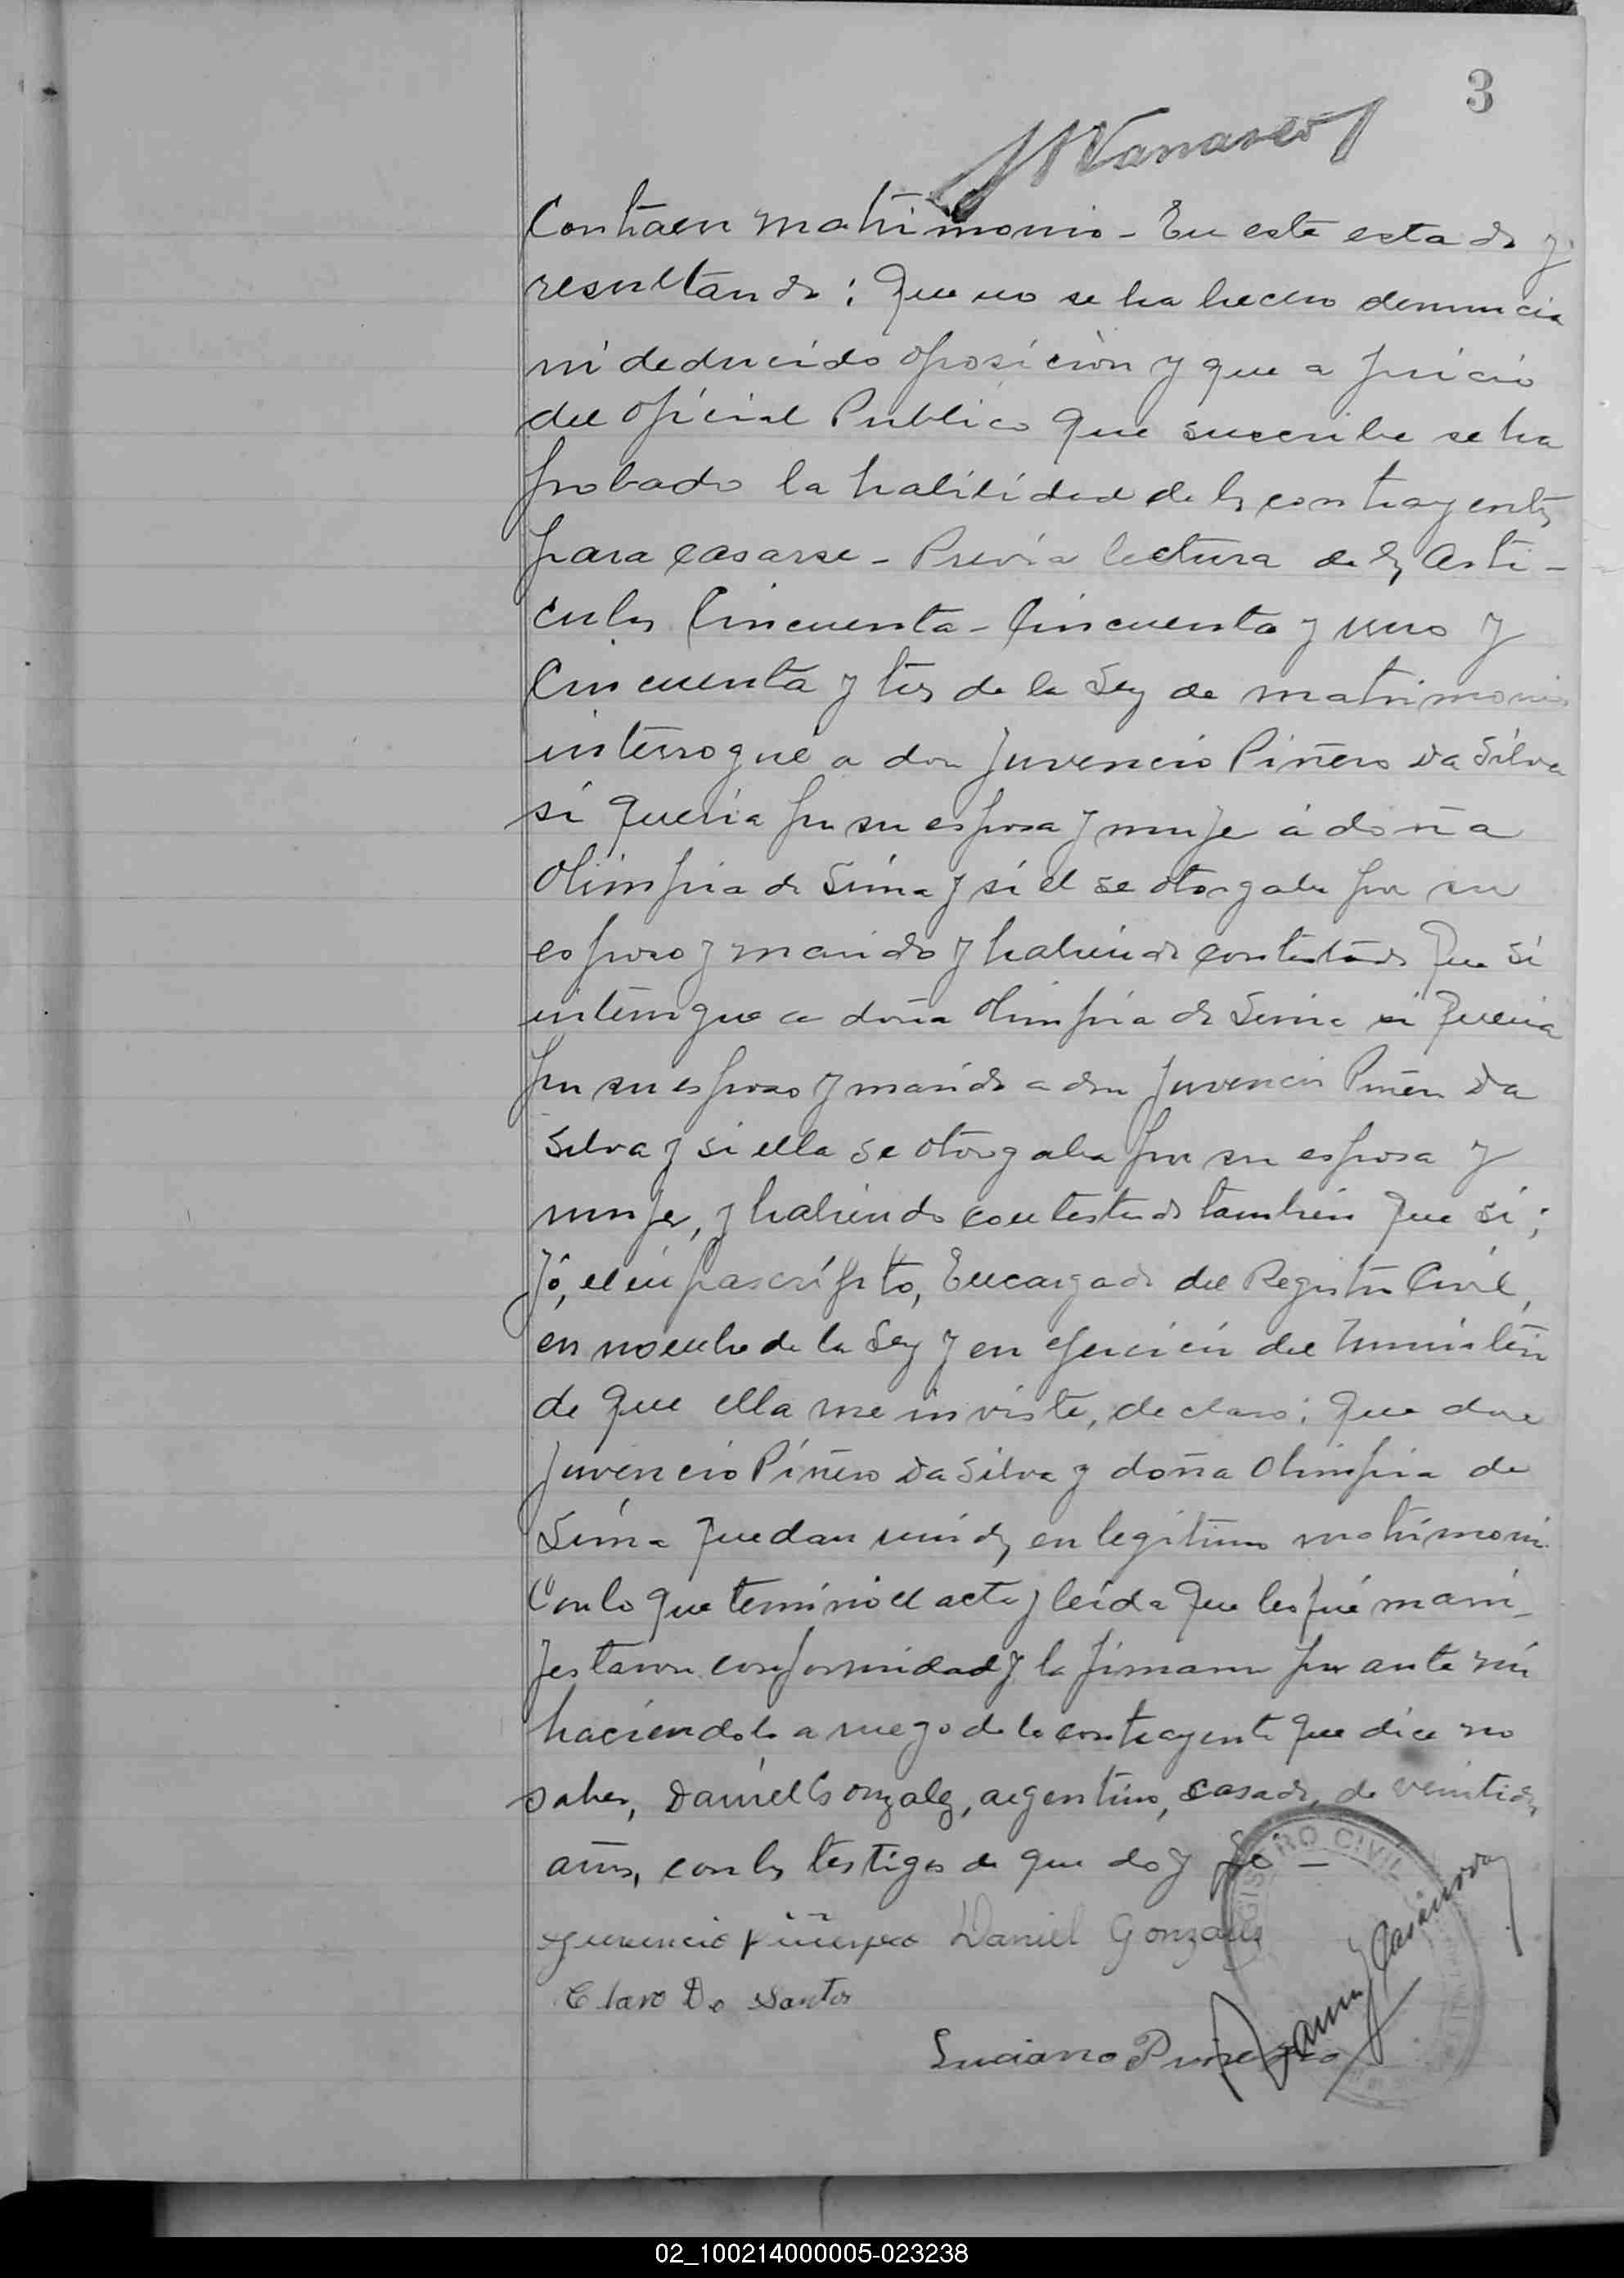 3
Contraen matrimonio - En este estado y
resultando: Que no se ha hecho denuncia
ni deducido oposición y que a juicio
del oficial Publico que suscribe se ha
probado la habilidad de los contrayentes
para casarse - Previa lectura de los Arti-
culos Cincuenta - Cincuenta y uno y
Cincuenta y tres de la Ley de matrimonio
interrogué a don Juvencio Piñero Da Silva
si queria por su esposa y mujer á doña
Olimpia de Lima y si el se otorgaba por su
esposo y marido y habiendo contestado que si
interrogue a doña Olimpia de Lima si queria
por su esposo y marido a don Juvencio Piñero Da
Silva y si ella se otorgaba por su esposa y
mujer, y habiendo contestado tambien que si;
Yó, el infrascripto, Encargado del Registro Civil,
en nombre de la Ley y en ejercicio del ministerio
de que ella me inviste, declaro: que don
Juvencio Piñero Da Silva y doña Olimpia de
Lima quedan unidos en legitimo matrimonio.
Con lo que terminó el acta y leida que les fué mani-
festaron conformidad y la firmaron por ante mi
haciendolo a ruego de la contrayente que dice no
saber, Daniel Gonzalez, argentino, casado, de veintidos
años, con los testigos de que doy fé -
Juvencio piñeyro Daniel Gonzalez
Claro Do Santos
Luciano
REGISTRO CIVIL
02_100214000005-023238